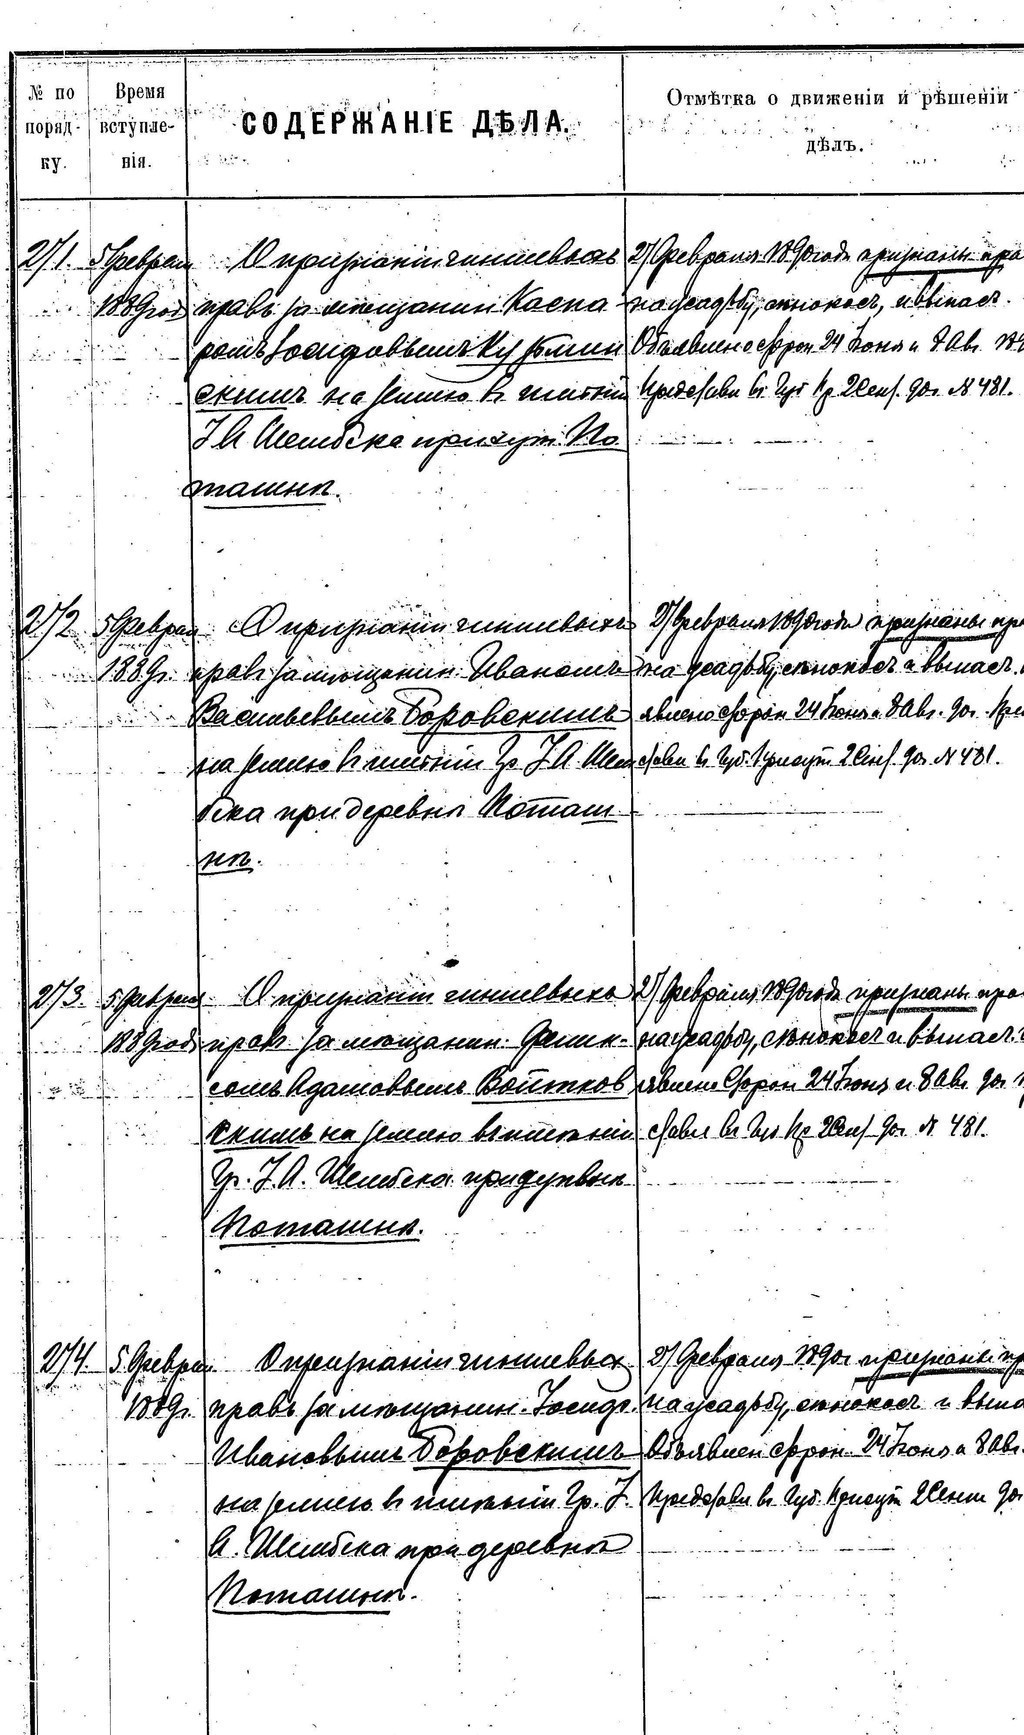 № по порядку.
Время вступленія.
СОДЕРЖАНІЕ ДѢЛА.
Отмѣтка о движеніи и рѣшеніи
дѣлъ.
271. 5 Феврал
1889 год
О признаніи чиншевыхъ
правъ за мѣщанин Каспа
ромъ Іосифовымъ
скимъ на землю въ имѣніи
І А Шембека при
По
ташнѣ.
27 Февраля 1890 года признаны пра
на усадьбу, сѣнокосъ, и выпасъ.
Объявлено сторон 24 Іюня и 8 Авг.
Представл въ Губ Пр 2 Сент. 90 г. № 481.
272 5 Феврал
1889 г.
О признаніи чиншевыхъ
правъ за мѣщанин. Иваномъ
Васильевымъ Боровскимъ
на землю въ имѣніи Гр І. А. Шем
бека при деревнѣ Поташ
нѣ.
27 Февраля 1890 года признаны пра
на усадьбу, сѣнокосъ и выпасъ.
явлено сторон 24 Іюня и 8 Авг. 90 г. Пре
ставл въ Губ. Присут 2 Сент. 90 г. № 481.
273. 5 Феврал
1889 год
О признаніи чиншевыхъ
правъ за мѣщанин. Феликсомъ Адамовымъ Войтков
скимъ на землю въ имѣніи
Гр. І. А. Шембека при
Поташнѣ.
27 Февраля 1890 года признаны пра
на усадьбу, сѣнокосъ и выпасъ.
явлено Сторон 24 Іюня и 8 Авг. 90 г.
ставл въ Губ Пр 2 Сент 90 г. № 481.
274. 5 Феврал
1889 г.
О признаніи чиншевыхъ
правъ за мѣщанин. Іосифо.
Ивановымъ Боровскимъ
на землю въ имѣніи Гр. І.
А. Шембека при деревнѣ
Поташнѣ.
27 Февраля 1890 г признаны пр
на усадьбу, сѣнокосъ и выпа
Объявлен сторон 24 Іюня и 8 Авг.
Представл въ Губ. Присут 2 Сент 90 г